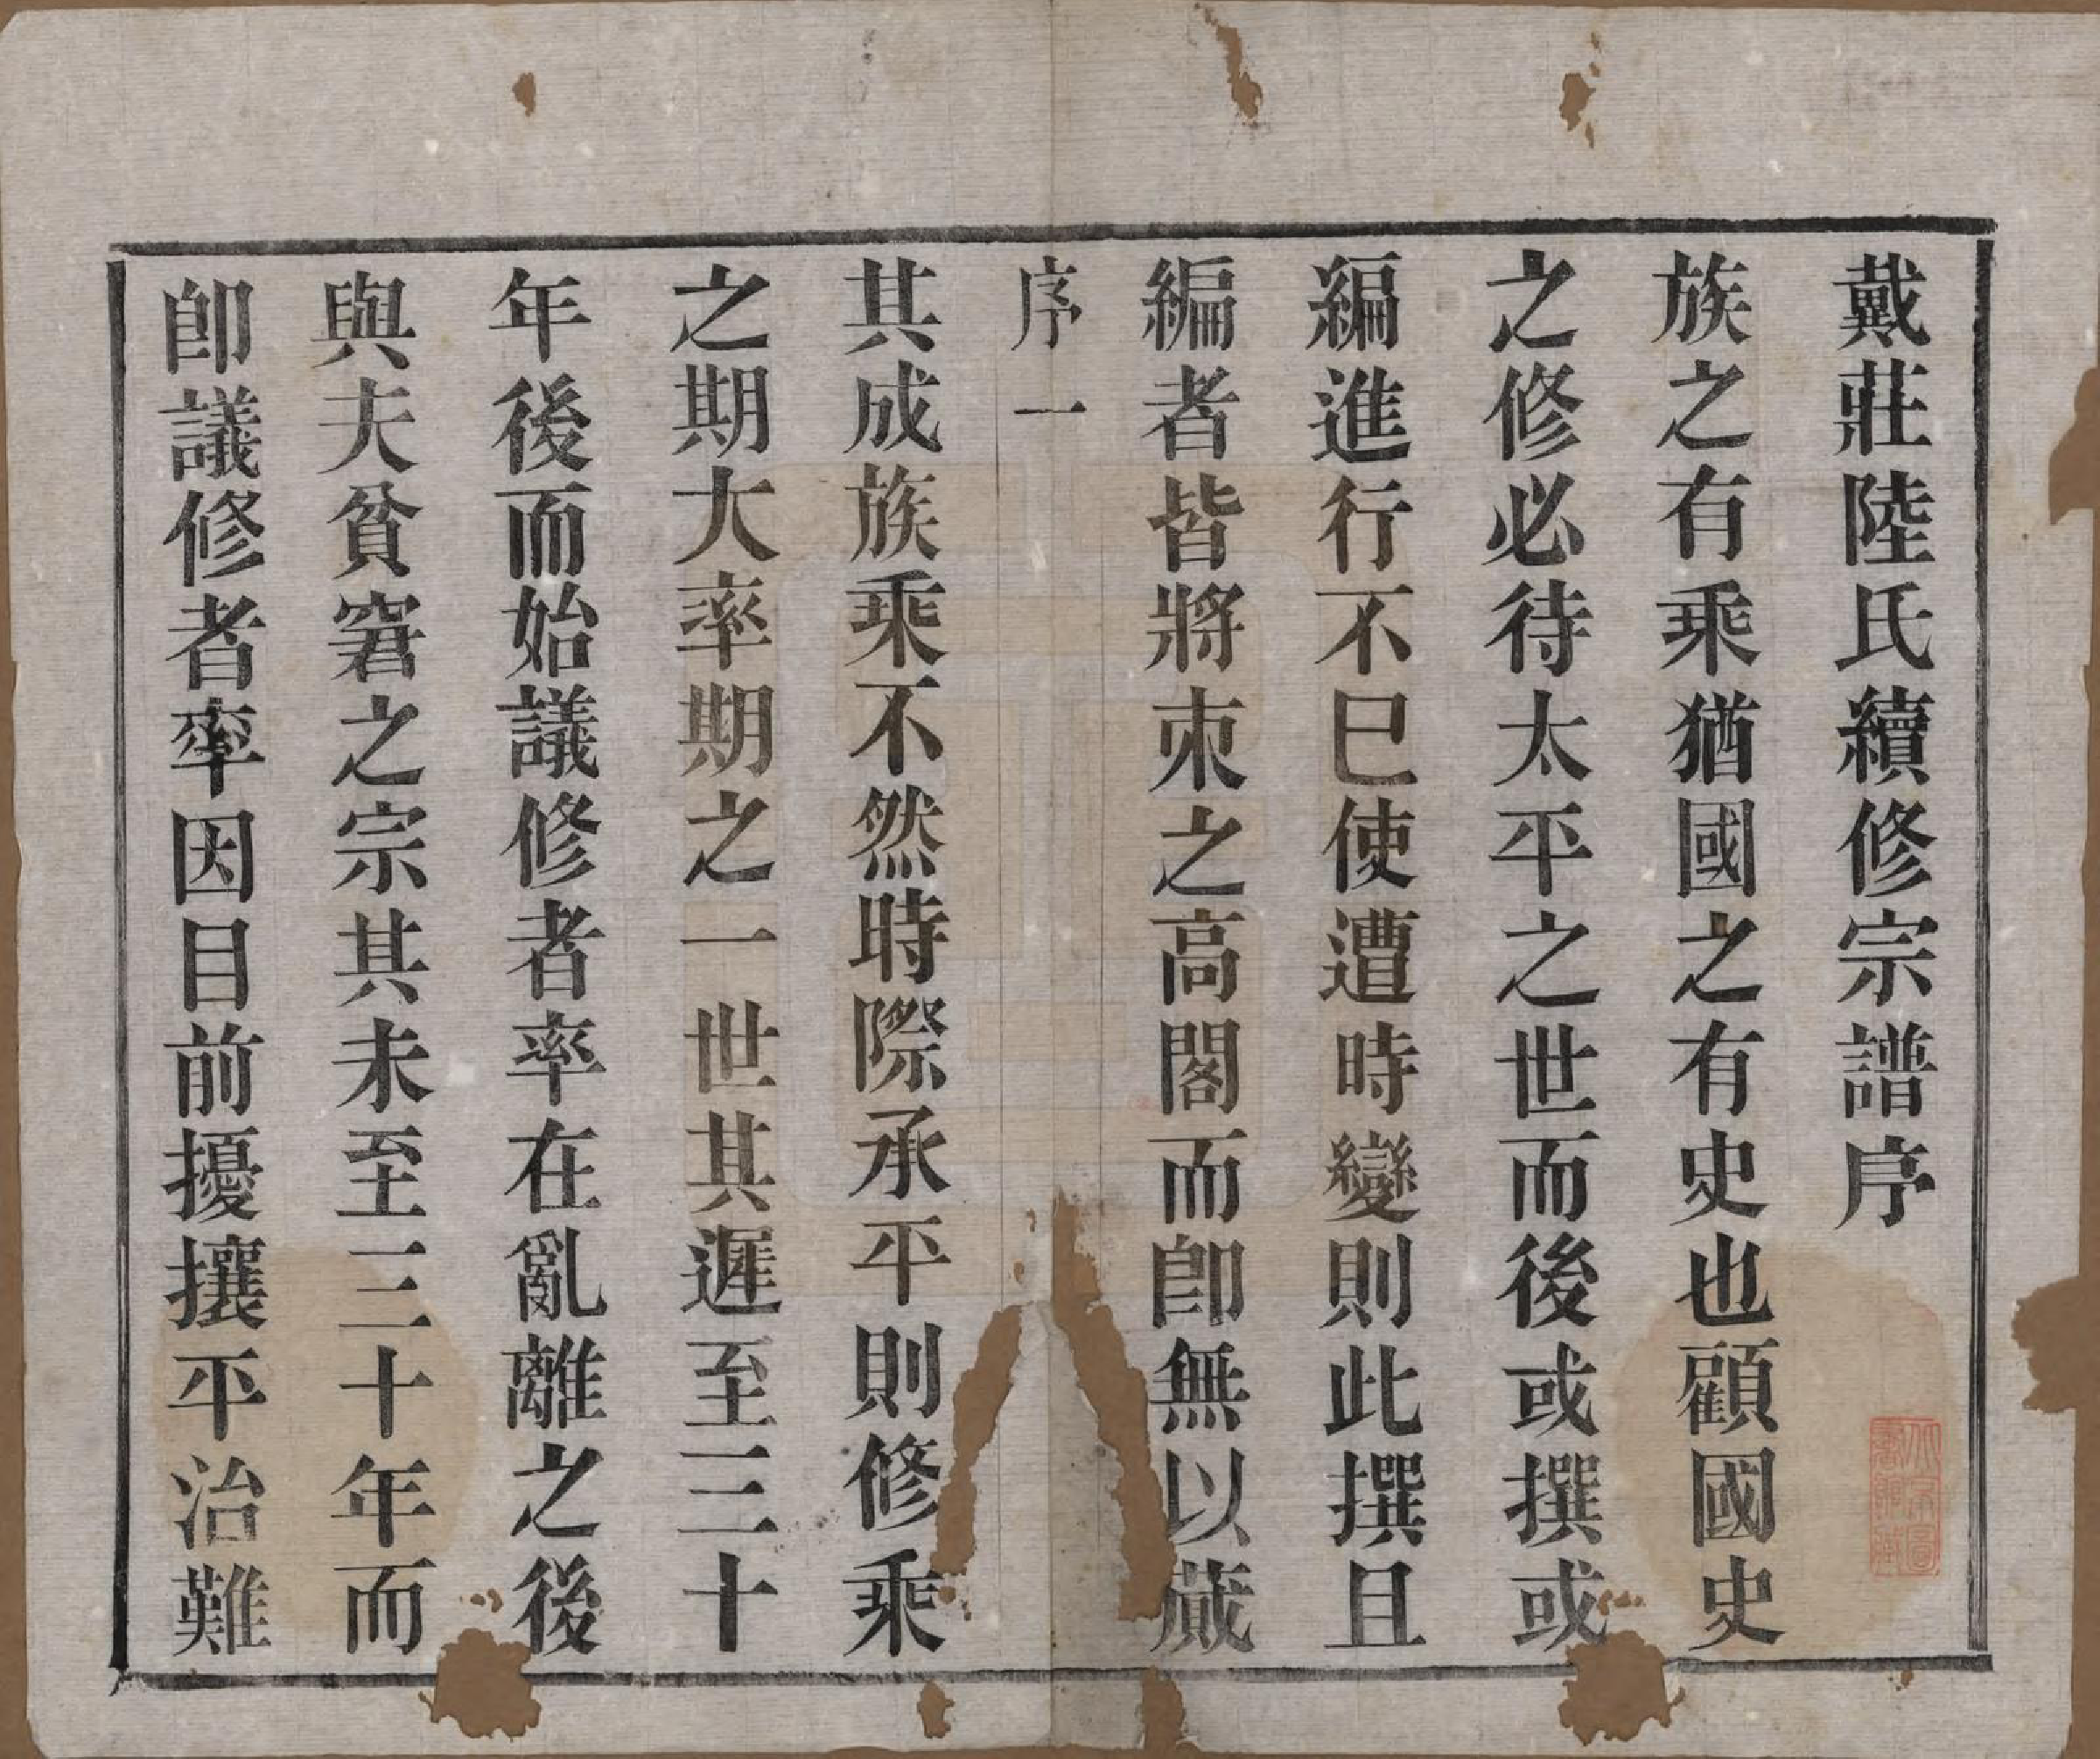 戴莊陸氏續修宗譜序
族之有乘猶國之有史也顧國史
之修必待太平之世而後或撰或
編進行不已使遭時變則此撰且
編者皆將束之高閣而卽無以蕆
序一
其成族乘不然時際承平則修乘
之期大率期之一世其遲至三十
年後而始議修者率在亂離之後
與夫貧窘之宗其未至三十年而
卽議修者率因目前擾攘平治難